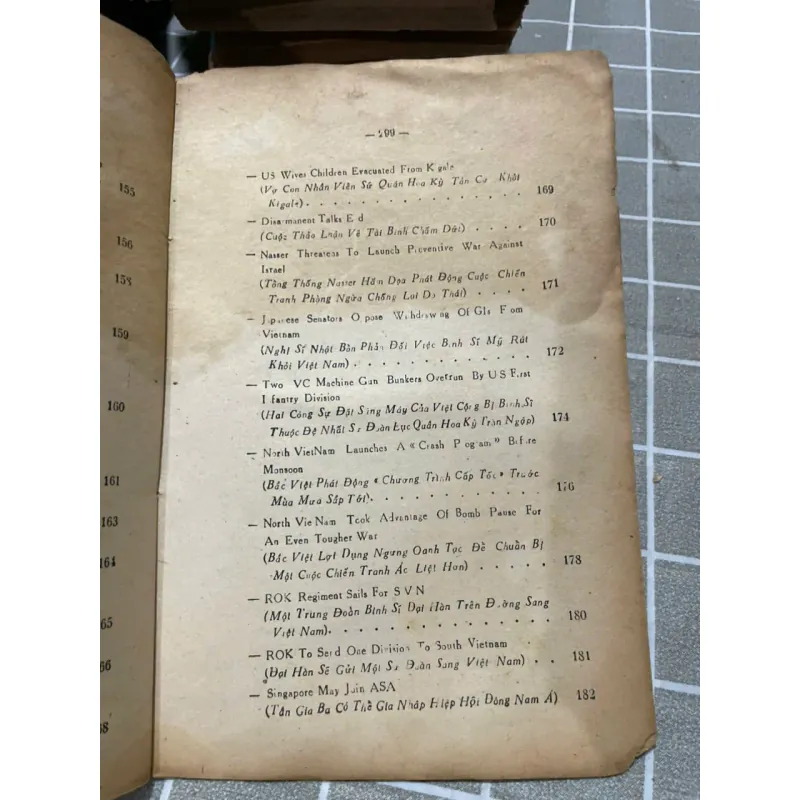 155
156
158
159
160
161
163
164
65
66
68
— 299 —
— US Wives Children Evacuated From Kigale
(Vợ Con Nhân Viên Sứ Quán Hoa Kỳ Tản Cư Khỏi
Kigale) . . . . . . . . . . . . . . . . 169
— Disarmanent Talks E d
(Cuộc Thảo Luận Về Tài Binh Chấm Dứt) . . . . . 170
— Nasser Threatens To Launch Preventive War Against
Israel
(Tổng Thống Nasser Hăm Dọa Phát Động Cuộc Chiến
Tranh Phòng Ngừa Chống Lui Do Thái) . . . . 171
— Japanese Senators O pose Withdrawing Of GIs F om
Vietnam
(Nghị Sĩ Nhật Bản Phản Đối Việc Binh Sĩ Mỹ Rút
Khỏi Việt Nam) . . . . . . . . . . . . . 172
— Two VC Machine Gun Bunkers Overrun By US First
I fantry Division
(Hai Công Sự Đặt Súng Máy Của Việt Cộng Bị Binh Sĩ
Thuộc Đệ Nhất Sư Đoàn Lục Quân Hoa Kỳ Tràn Ngập) 174
— North VietNam Launches A « Crash P ogram” Before
Monsoon
(Bắc Việt Phát Động « Chương Trình Cấp Tốc » Trước
Mùa Mưa Sắp Tới) . . . . . . . . . . . . 176
— North Vie Nam Took Advantage Of Bomb Pause For
An Even Tougher War
(Bắc Việt Lợi Dụng Ngưng Oanh Tạc Để Chuẩn Bị
Một Cuộc Chiến Tranh Ác Liệt Hơn) . . . . . 178
— ROK Regiment Sails For S V N
(Một Trung Đoàn Binh Sĩ Đại Hàn Trên Đường Sang
Việt Nam) . . . . . . . . . . . . . . . 180
— ROK To Send One Division To South Vietnam
(Đại Hàn Sẽ Gửi Một Sư Đoàn Sang Việt Nam) . . 181
— Singapore May Join ASA
(Tân Gia Ba Có Thể Gia Nhập Hiệp Hội Đông Nam Á) 182